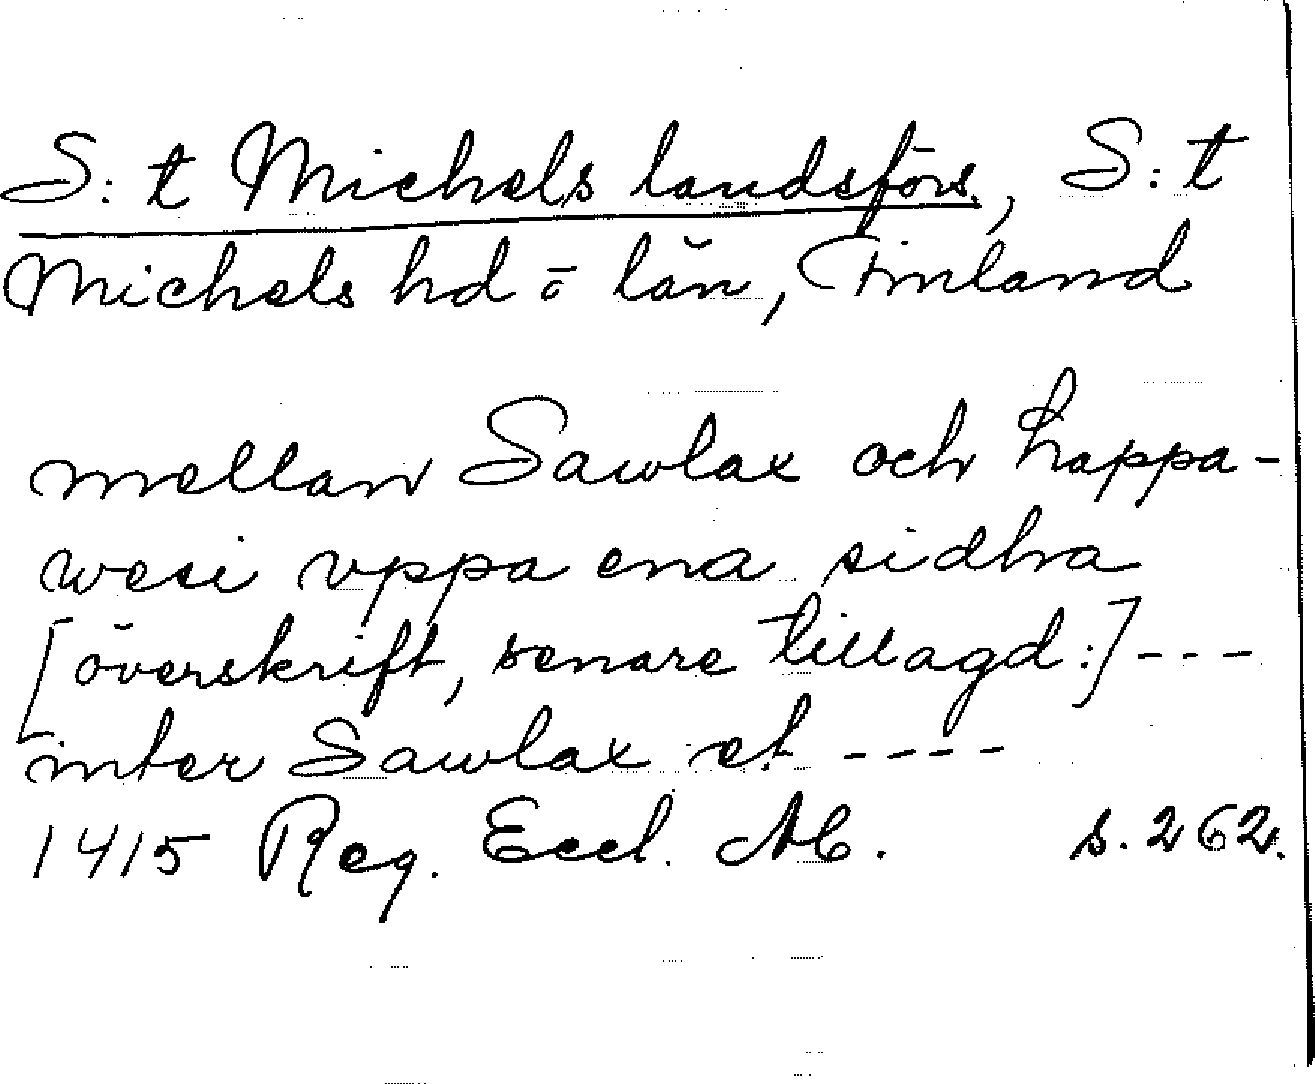 S:t Michels landsförs., S:t
Michels hd o län, Finland
mellan Sawlax och happa-
wesi vppa ena sidhra
[överskrift, senare tillagd:] ---
inter Sawlax et ----
1415 Reg. Eccl. Ab. s. 262.